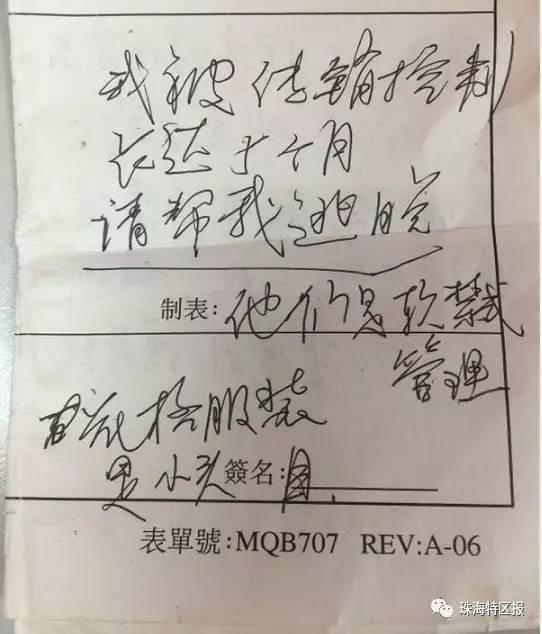 我被传销控制
长达十个月
请帮我逃脱
制表：他们是软禁式
管理
穿花格服装
是小头目
簽名：
表單號：MQB707 REV:A-06
珠海特区报